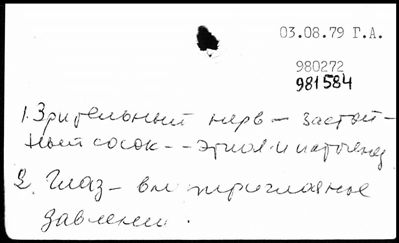 03.08.79 Г.А.
980272
981584
1. Зрительный нерв - застой-
ный сосок -- этиол. и патогенез
2. Глаз - внутриглазное
давление.